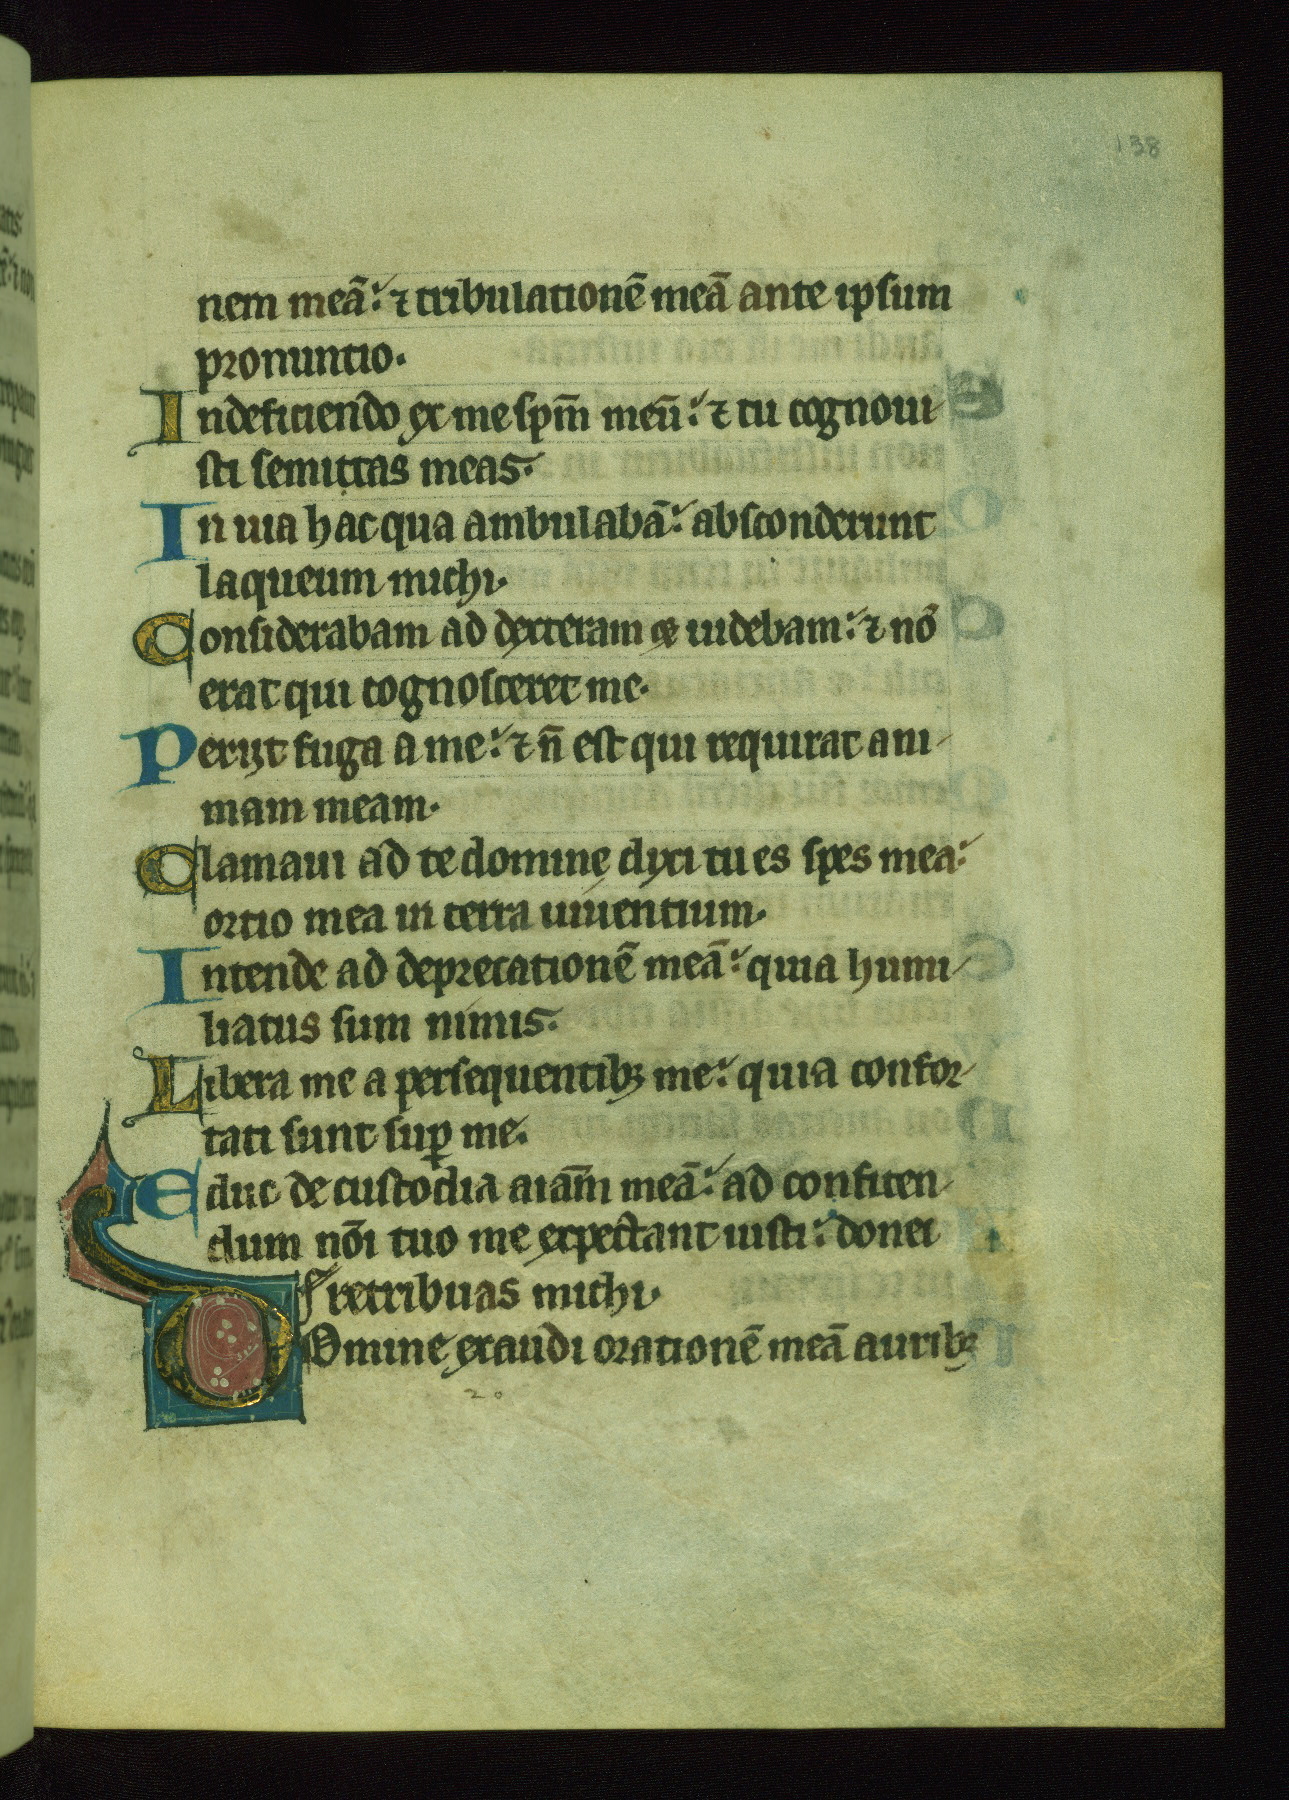 138
nem meā: ⁊ tribulationē meā ante ipsum
pronuntio.
Indeficiendo ex me spm̄ meū: ⁊ tu cognoui
sti semittas meas.
In uia hac qua ambulabā: absconderunt
laqueum michi.
Considerabam ad dexteram & uidebam: ⁊ nō
erat qui cognosceret me.
Perijt fuga a me: ⁊ n̄ est qui requirat ani
mam meam.
Clamaui ad te domine dixi tu es spes mea:
ortio mea in terra uiuentium.
Intende ad deprecationē meā: quia humi
liatus sum nimis.
Libera me a persequentibꝫ me: quia confor
tati sunt suꝑ me.
Educ de custodia aiām meā: ad confiten
dum nōi tuo me expectant iusti: donec
retribuas michi.
Domine exaudi orationē meā auribꝫ
20